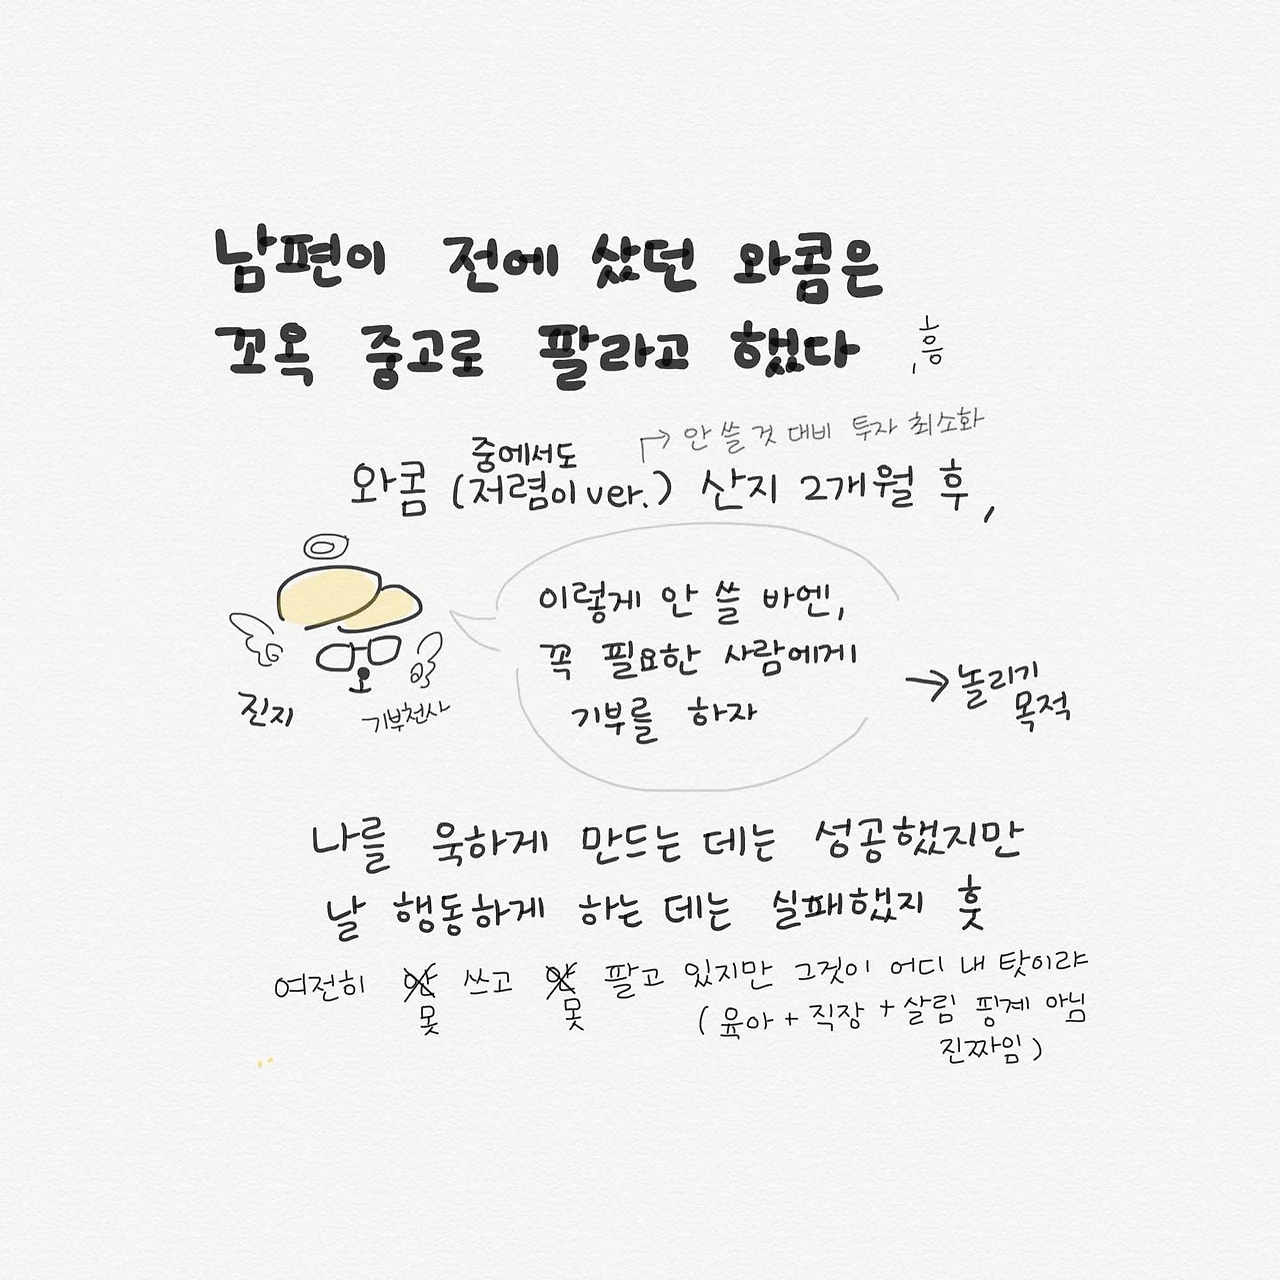 남편이 전에 샀던 와콤은
꼬옥 중고로 팔라고 했다 흥,
안 쓸 것 대비 투자 최소화
중에서도
와콤 (저렴이 ver.) 산지 2개월 후,
이렇게 안 쓸 바엔,
꼭 필요한 사람에게
기부를 하자
진지
기부천사
→ 놀리기
목적
나를 욱하게 만드는 데는 성공했지만
날 행동하게 하는 데는 실패했지 훗
여전히 안 쓰고 안 팔고 있지만 그것이 어디 내 탓이랴
못 못
(육아 + 직장 + 살림 핑계 아님
진짜임)